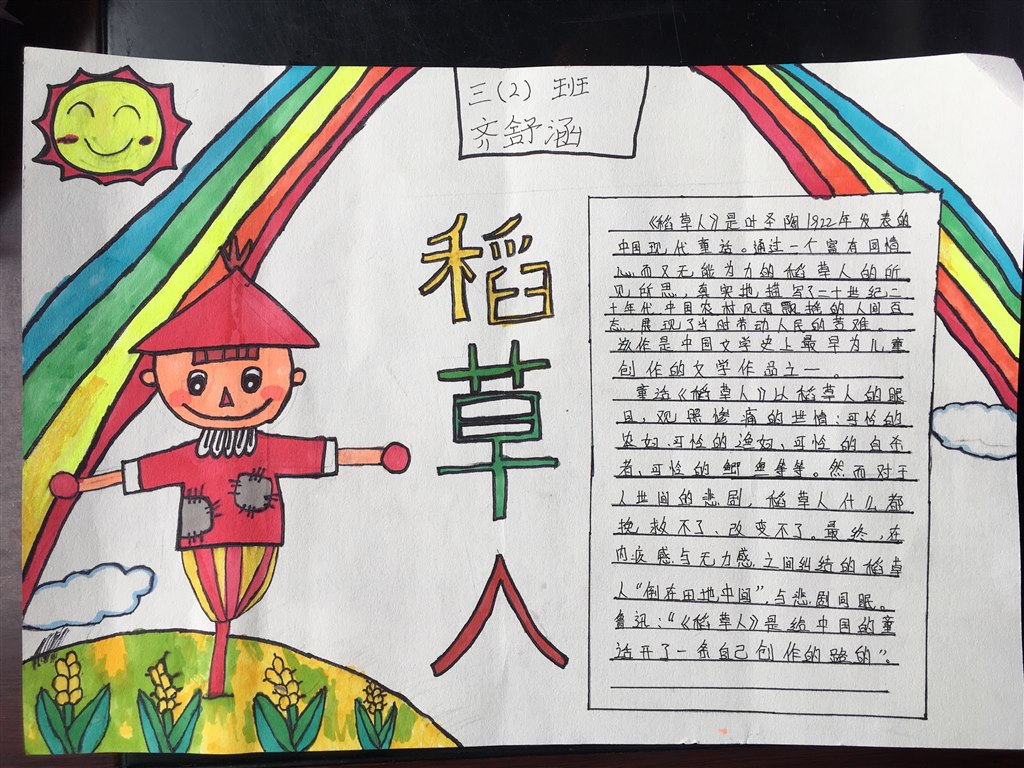 三(2)班
齐舒涵
稻草人
《稻草人》是叶圣陶1922年发表的
中国现代童话。通过一个富有同情
心而又无能为力的稻草人的所
见所思，真实地描写了二十世纪二
十年代中国农村风雨飘摇的人间百
态，展现了当时劳动人民的苦难。
该作是中国文学史上最早为儿童
创作的文学作品之一。
童话《稻草人》以稻草人的眼
目，观照惨痛的世情：可怜的
农妇、可怜的渔妇、可怜的自杀
者、可怜的鲫鱼等等。然而对于
人世间的悲剧，稻草人什么都
挽救不了、改变不了。最终，在
内疚感与无力感之间纠结的稻草
人“倒在田地中间”，与悲剧同眠。
鲁迅：“《稻草人》是给中国的童
话开了一条自己创作的路的”。